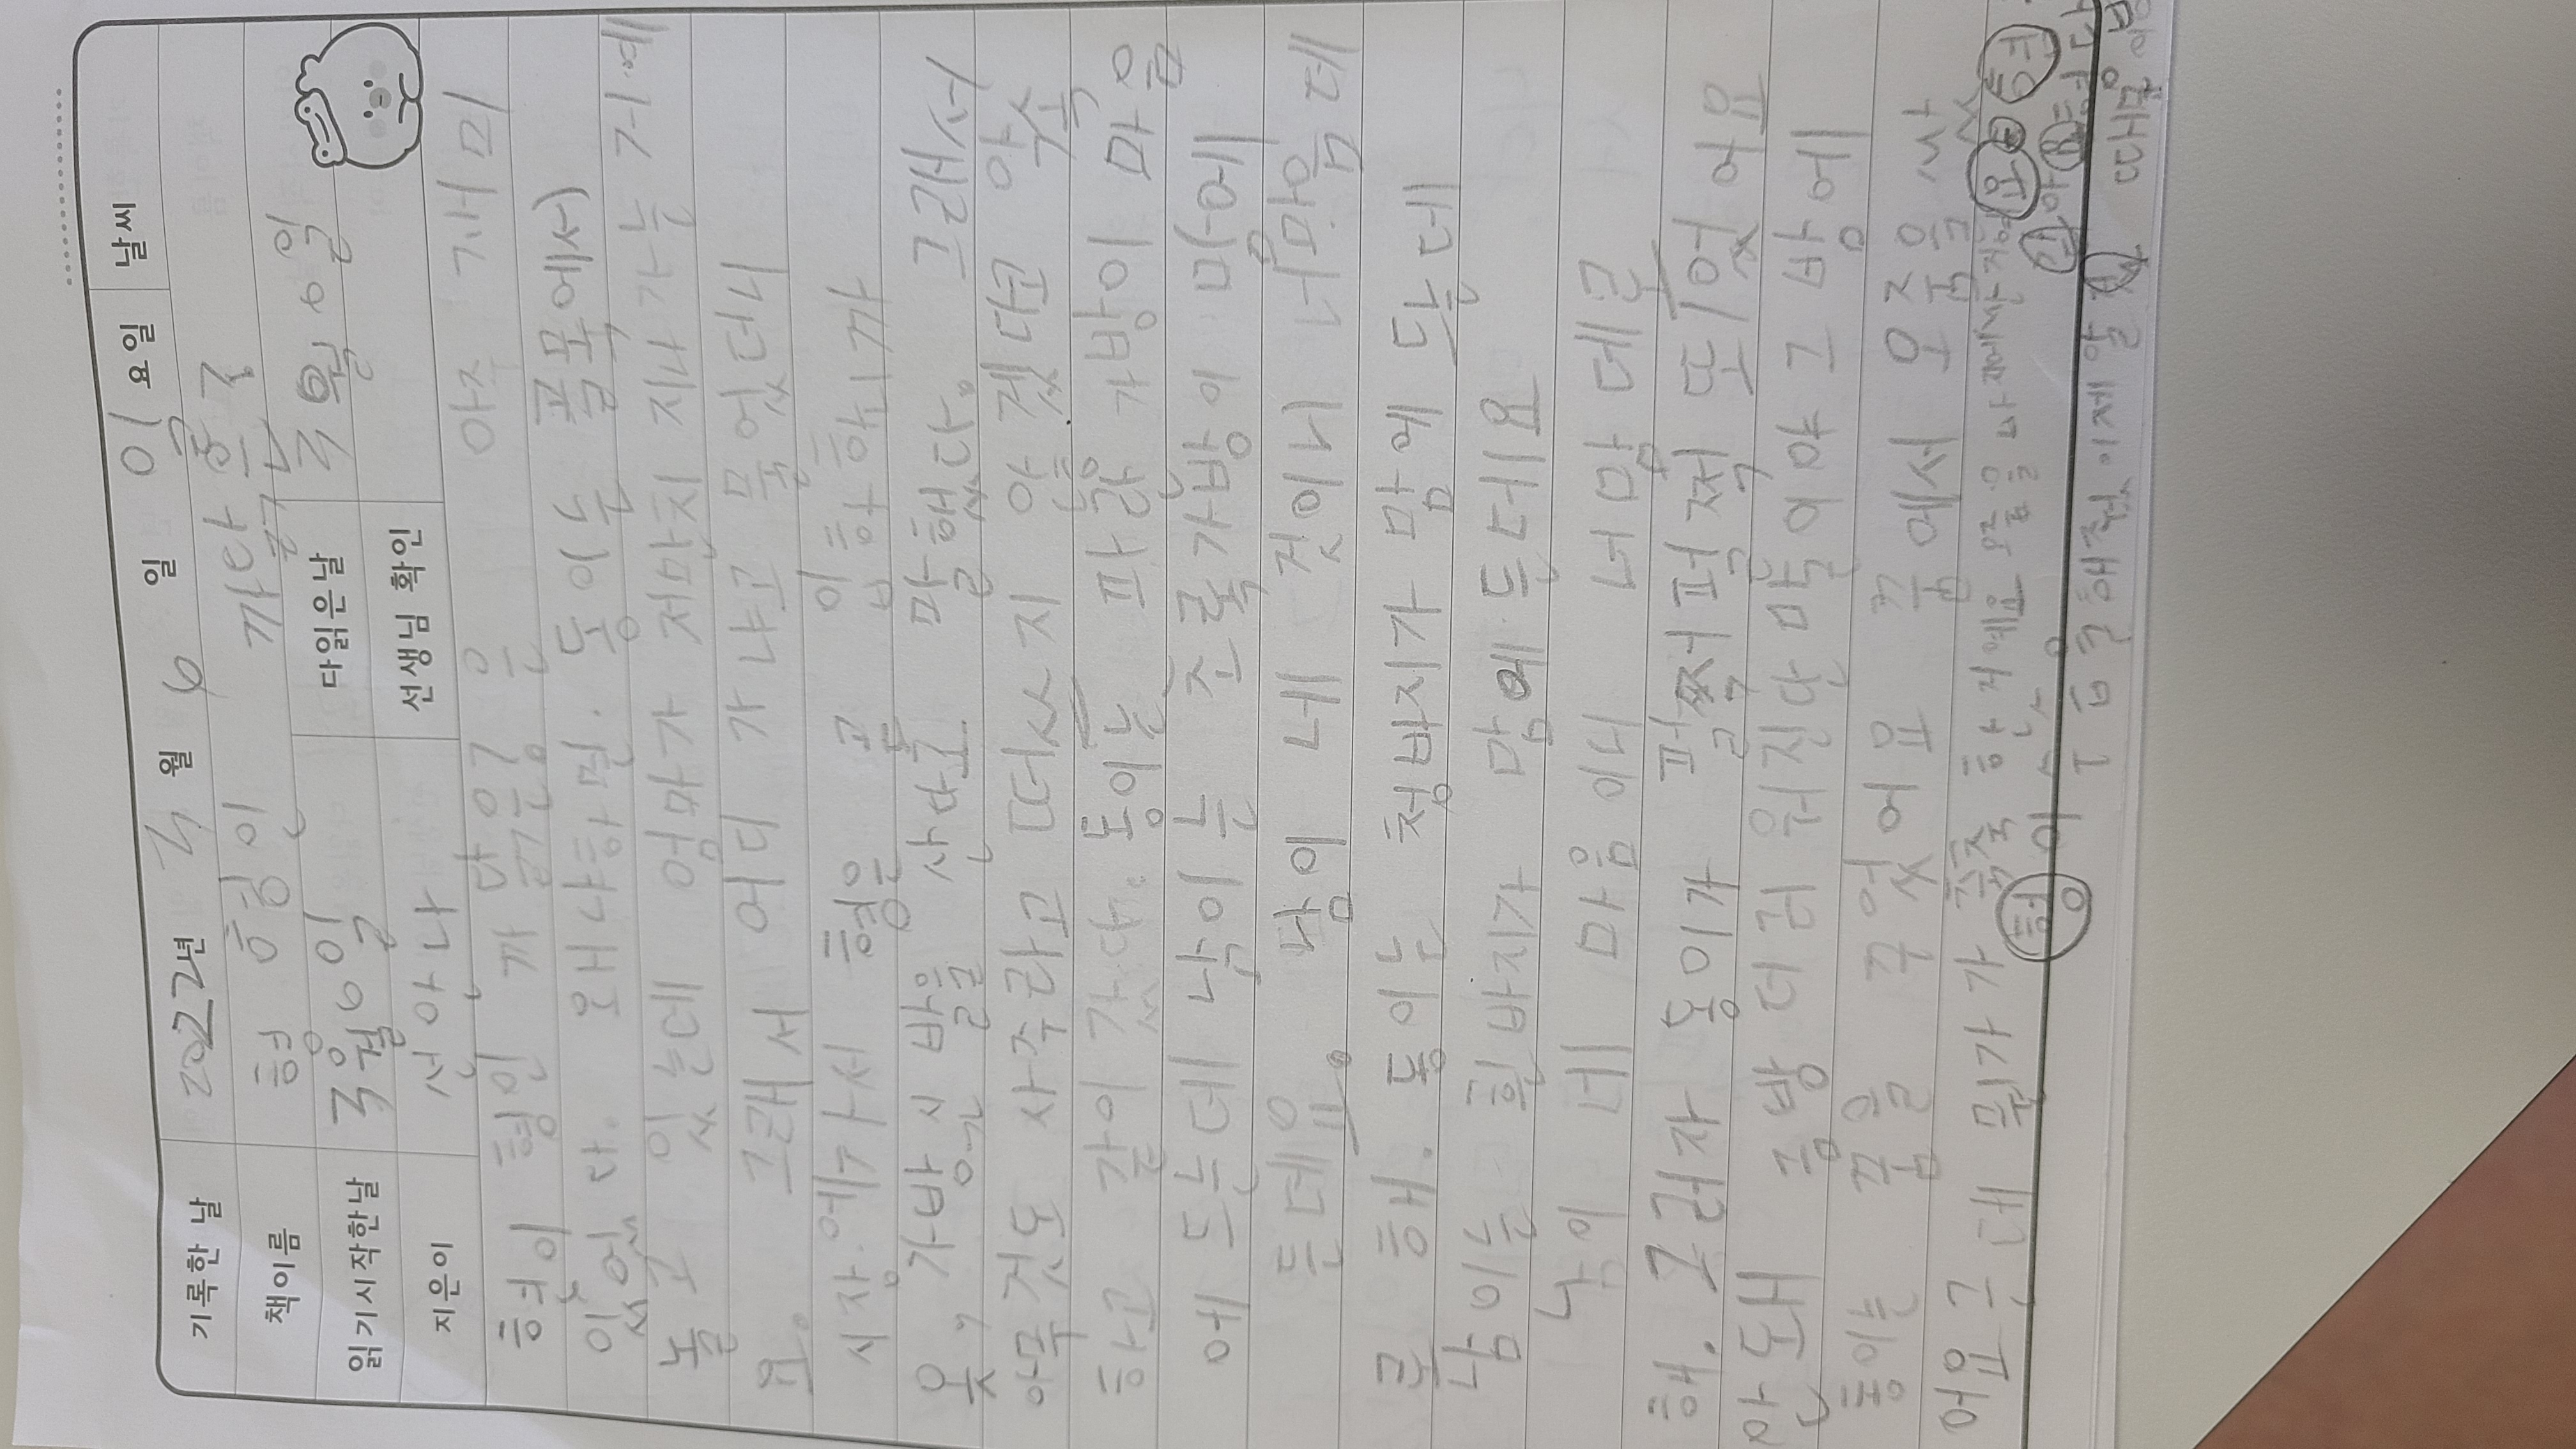 기록한 날 2022년 3 월 6 일 일 요일 날씨
책이름 형 형인 까닭은?
읽기시작한날 3월6일 다읽은날 3월6일
지은이 선안나 선생님 확인
형이 형인 까닭은? 은 아주 재미
있었다. 왜냐하면. 동이는 골목에서
놀고 있는데 엄마가 저만치 지나가는 거예
요. 그래서 어디 가냐고 물었더니
시장에가서 형은 곧 입학하니까
옷, 가방, 신발을 산다고 말했다. 그래서
아무것도 사주라고 떠쓰지 않겠다고 약속
하고 같이 갔다. 동이는 파란 가방이 마음
에 드는데 남이는 초록가방이 맘에
든데요. 남이 네 것이니 너마음데
로 해. 동이는 청바지가 맘에 드는데
남이는 흰바지가 맘에 든데요
남이 네 마음이니 너맘데로
해. 그러자 동이가 펄쩍펄쩍 뛰었어요
안돼 금방 더러워진단 말이야 그 밤에
동이는 꿈을 꾸었어요 꿈에서 오줌을 쌌
어요 근데 뭔가가 축축한 거예요 오줌을
형이 해줬 이제 알